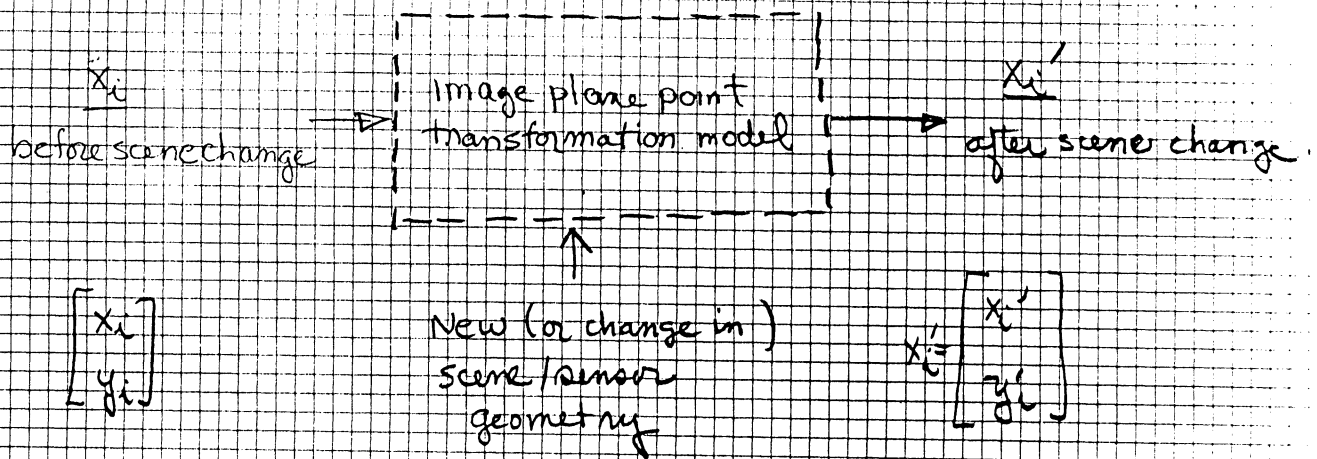 xi
before scene change
Image plane point
transformation model
xi'
after scene change.
[xi
yi]
New (or change in)
scene/sensor
geometry
xi' = [xi'
yi']